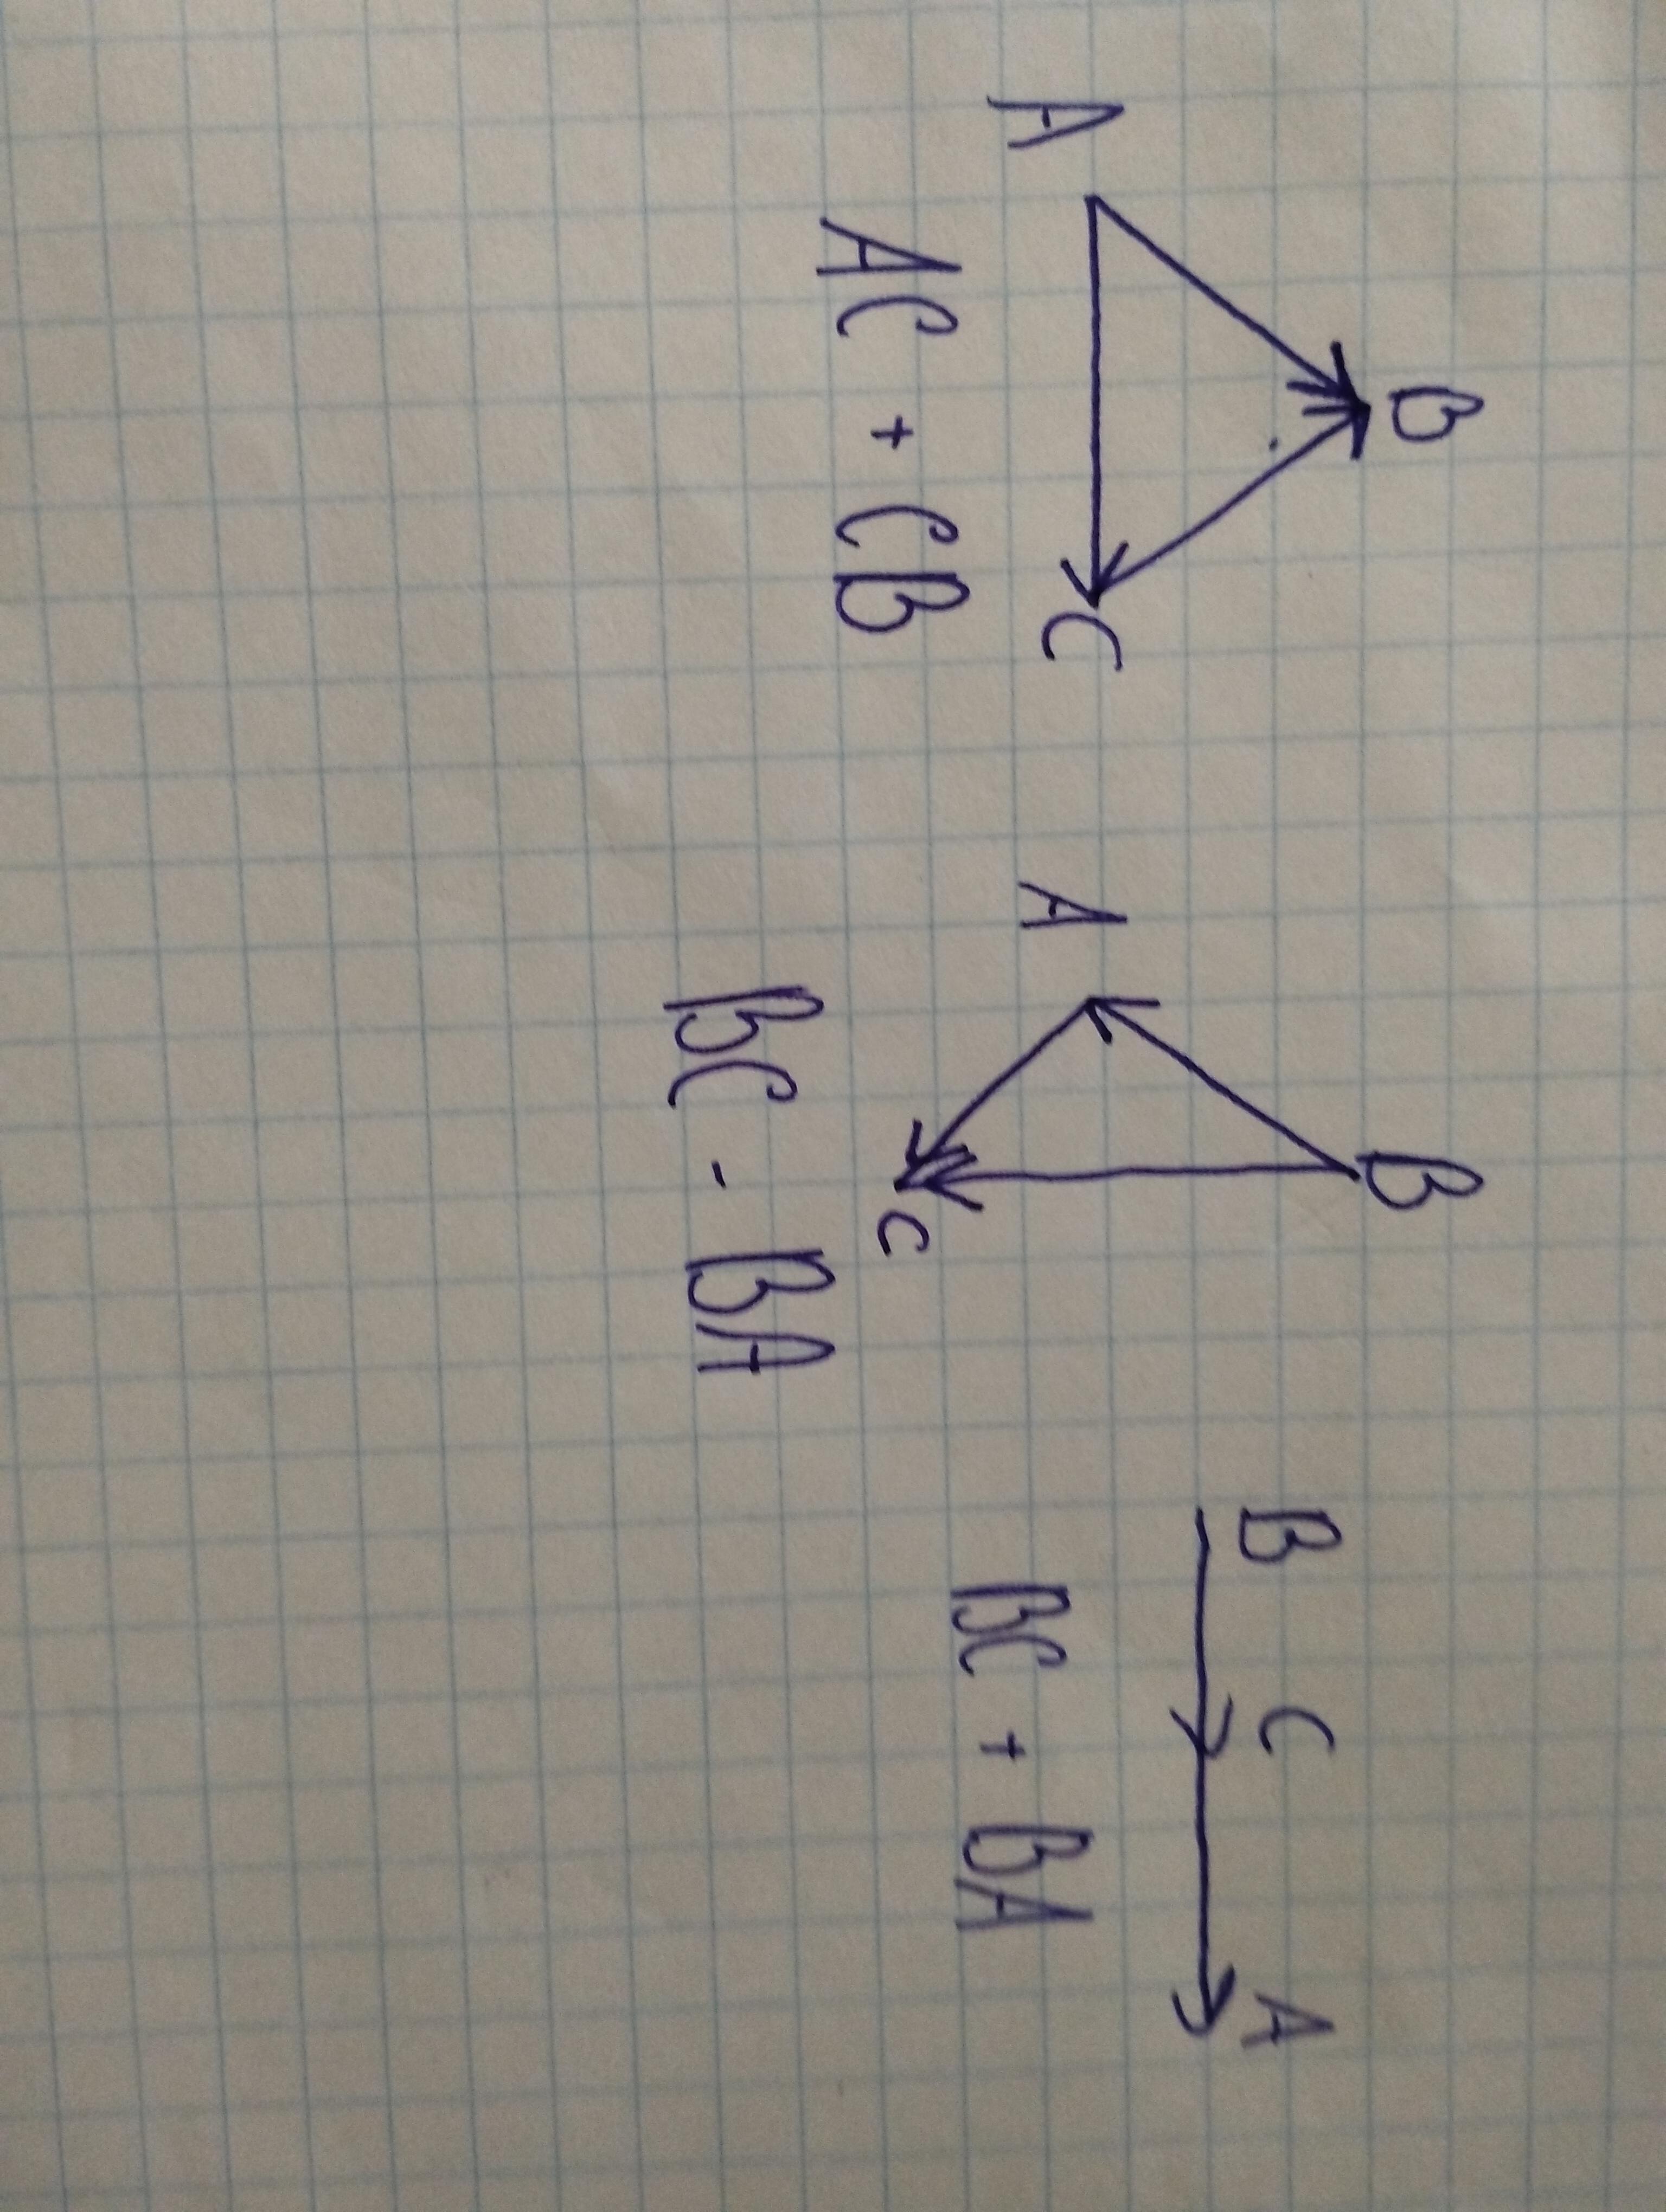 B
A C
AC + CB
B
A
C
BC - BA
B C A
BC + BA